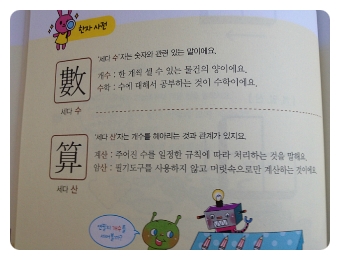 한자 사전
'세다 수'자는 숫자와 관련 있는 말이에요.
數
개수 : 한 개씩 셀 수 있는 물건의 양이에요.
수학 : 수에 대해서 공부하는 것이 수학이에요.
세다 수
'세다 산'자는 개수를 헤아리는 것과 관계가 있지요.
算
계산 : 주어진 수를 일정한 규칙에 따라 처리하는 것을 말해요.
암산 : 필기도구를 사용하지 않고 머릿속으로만 계산하는 것이에요
세다 산